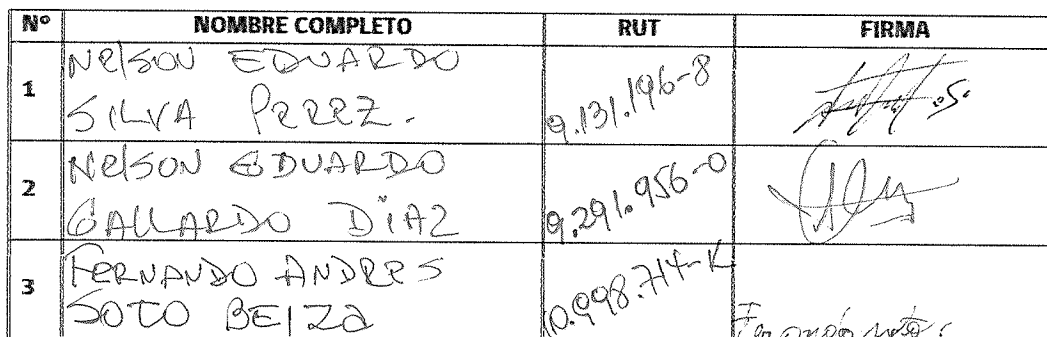 Nº NOMBRE COMPLETO RUT FIRMA
1 Nelson EDUARDO
SILVA PEREZ. 9.131.196-8
2 Nelson EDUARDO
GALLARDO DiAZ 9.291.956-0
3 FERNANDO ANDRES
SOTO BEIZa 10.998.714-K